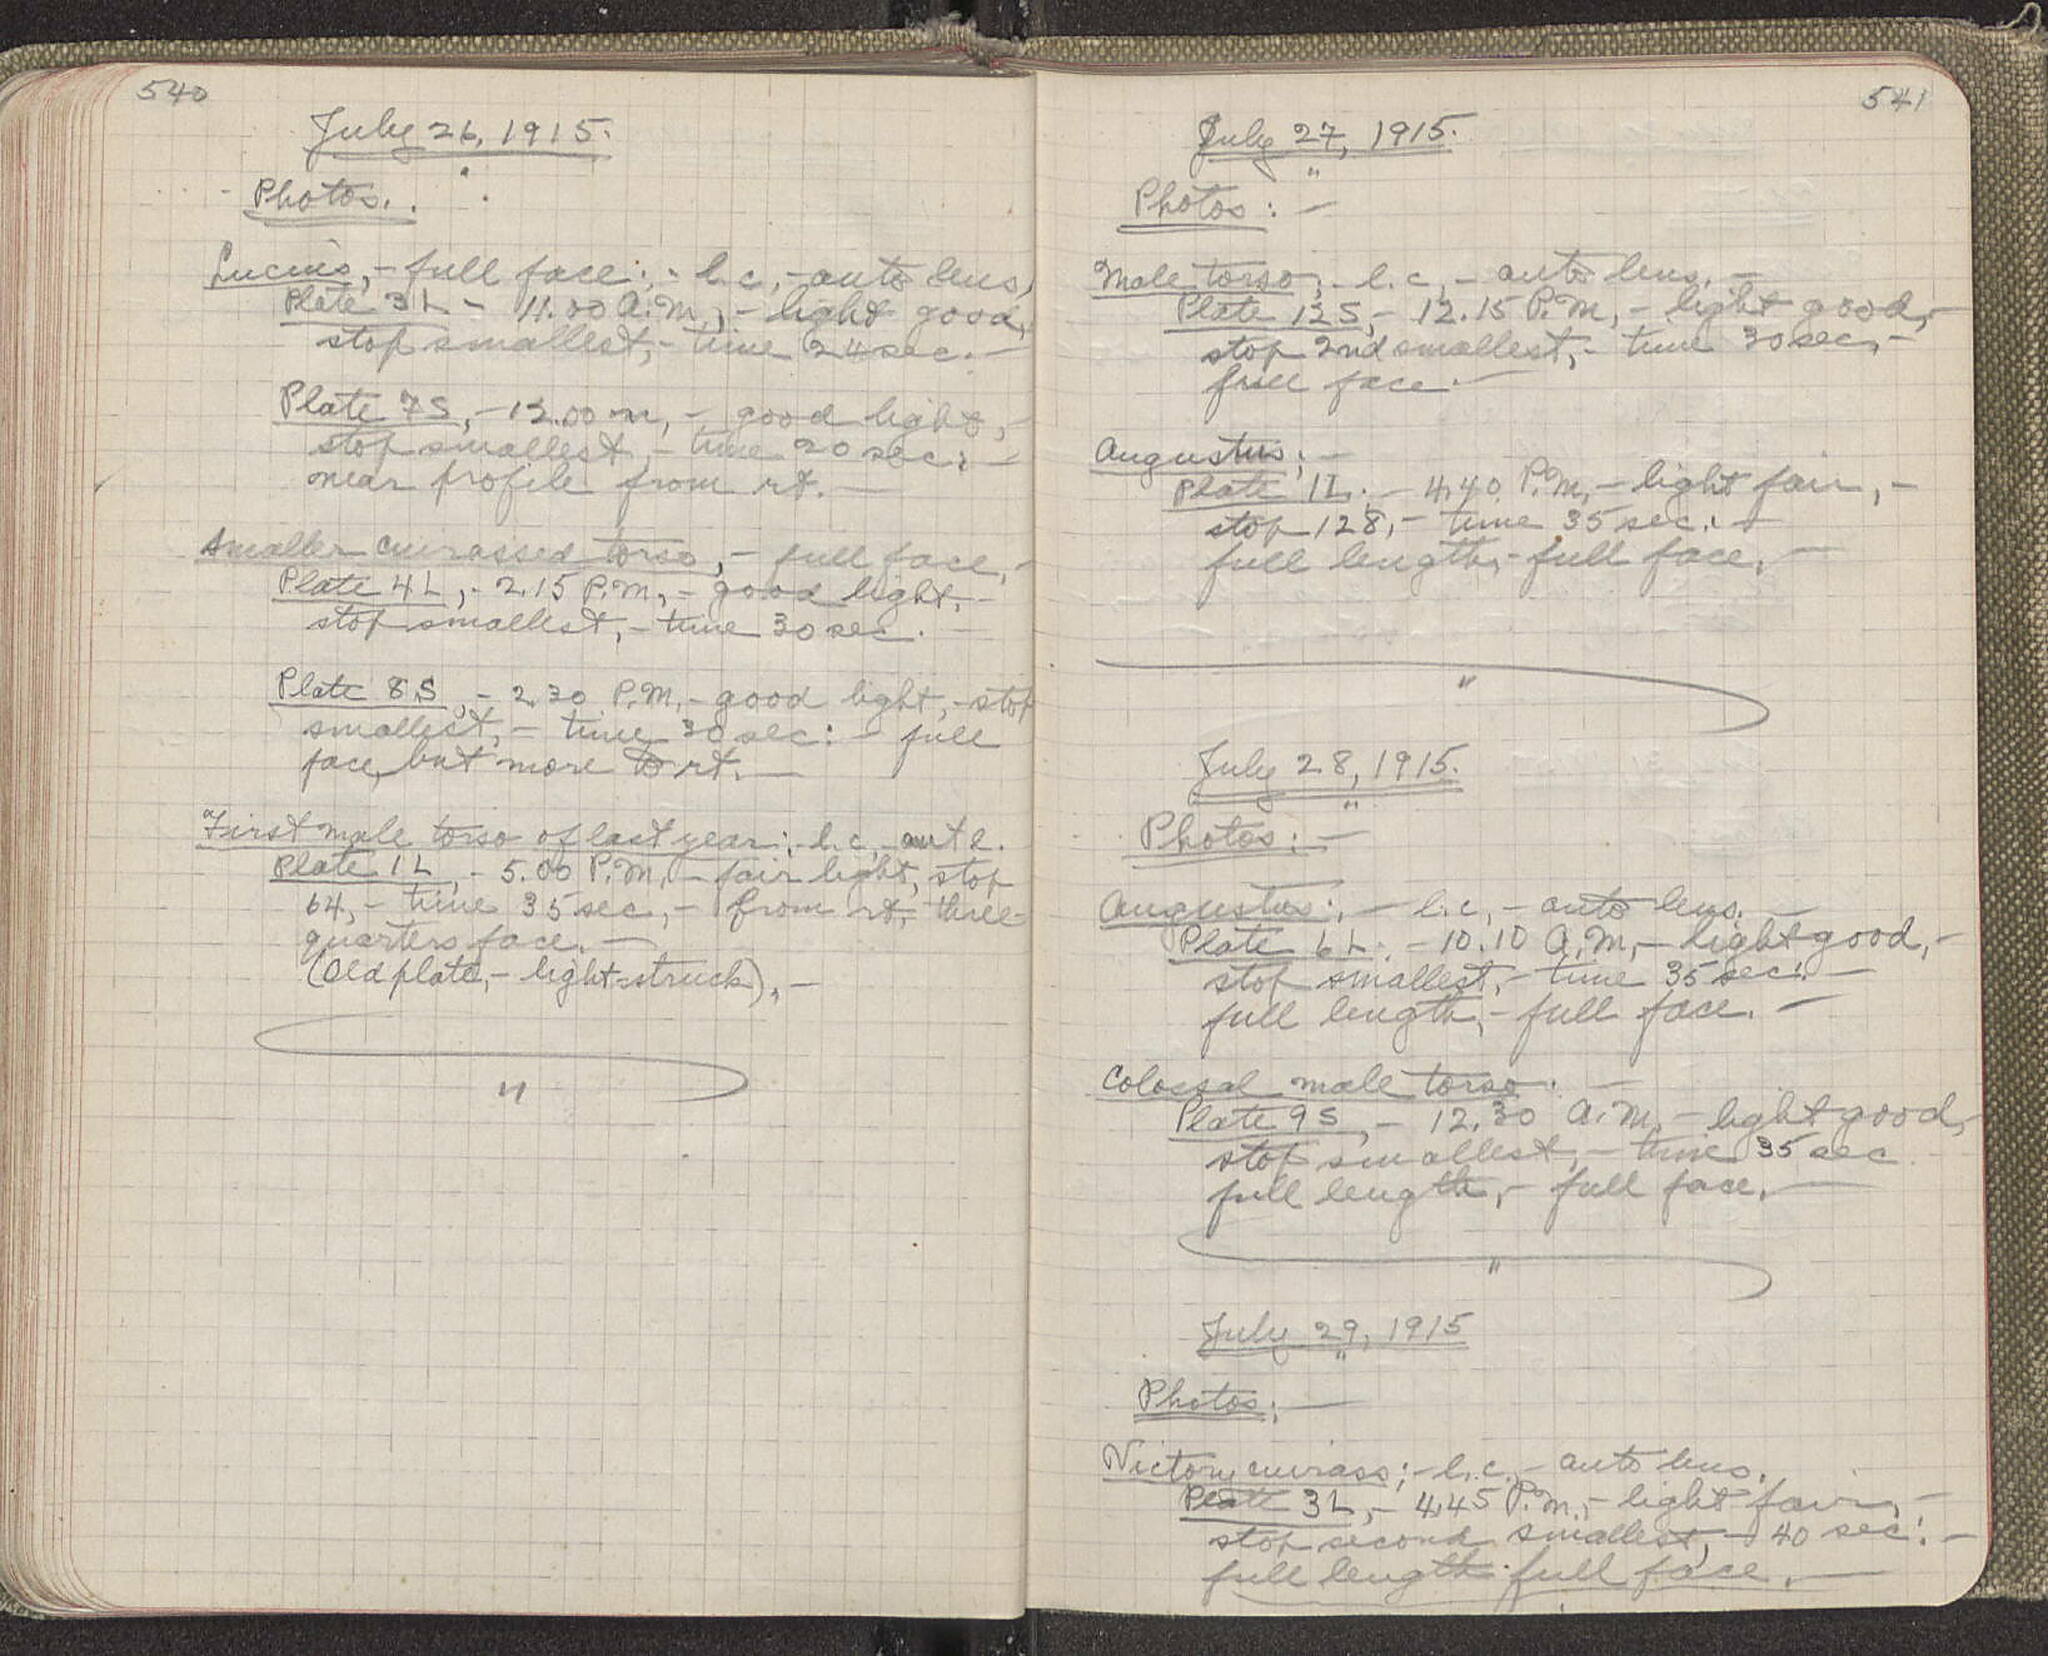 540
July 26, 1915.
Photos.
Lucius, - full face; - l.c, - auto lens,
Plate 3L - 11.00 A.M, - light good,
stop smallest, - time 24 sec. -
Plate 7S, - 12.00 m, - good light, -
stop smallest, - time 20 sec: -
near profile from rt. -
Smaller cuirassed torso, - full face, -
Plate 4L, - 2.15 P.M, - good light, -
stop smallest, - time 30 sec. -
Plate 8S, - 2.30 P.M. - good light, - stop
smallest, - time 30 sec: - full
face, but more to rt. -
First male torso of last year; - l.c, - aut l.
Plate 1L, - 5.00 P.M, - fair light, stop
64, - time 35 sec, - from rt, three-
quarters face. -
(Old plate, - light-struck). -
"
541
July 27, 1915.
"
Photos: -
Male torso, - l.c, - auto lens, -
Plate 12S, - 12.15 P.M, - light good, -
stop 2nd smallest, - time 30 sec, -
full face. -
Augustus; -
Plate 1L. - 4.40 P.M, - light fair, -
stop 128, - time 35 sec. -
full length, - full face. -
"
July 28, 1915.
"
Photos: -
Augustus:, - l.c, - auto lens. -
Plate 6L. - 10.10 A.M, - light good, -
stop smallest, - time 35 sec: -
full length, - full face. -
Colossal male torso: -
Plate 9S, - 12.30 A.M, - light good,
stop smallest, - time 35 sec
full length, - full face. -
"
July 29, 1915
"
Photos; -
Victory cuirass; - l.c. - auto lens.
Plate 3L, - 4.45 P.M, - light fair, -
stop second smallest, - 40 sec: -
full length full face. -